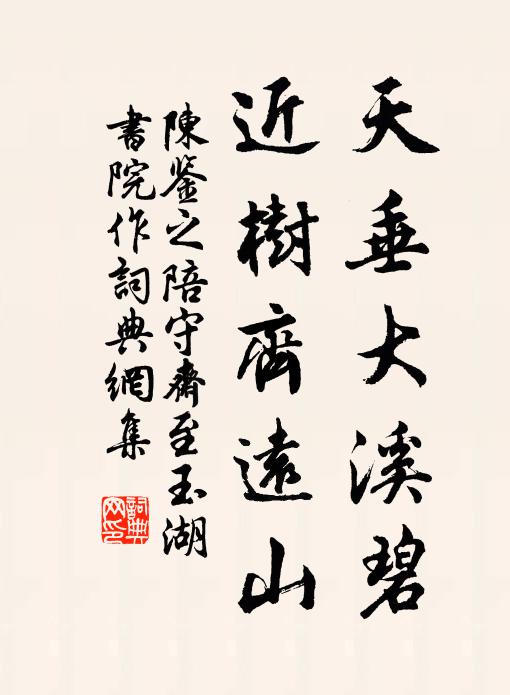 天垂大溪碧
近樹齊遠山
陳鑒之陪守齋至玉湖
書院作詞典網集
詞典
网印